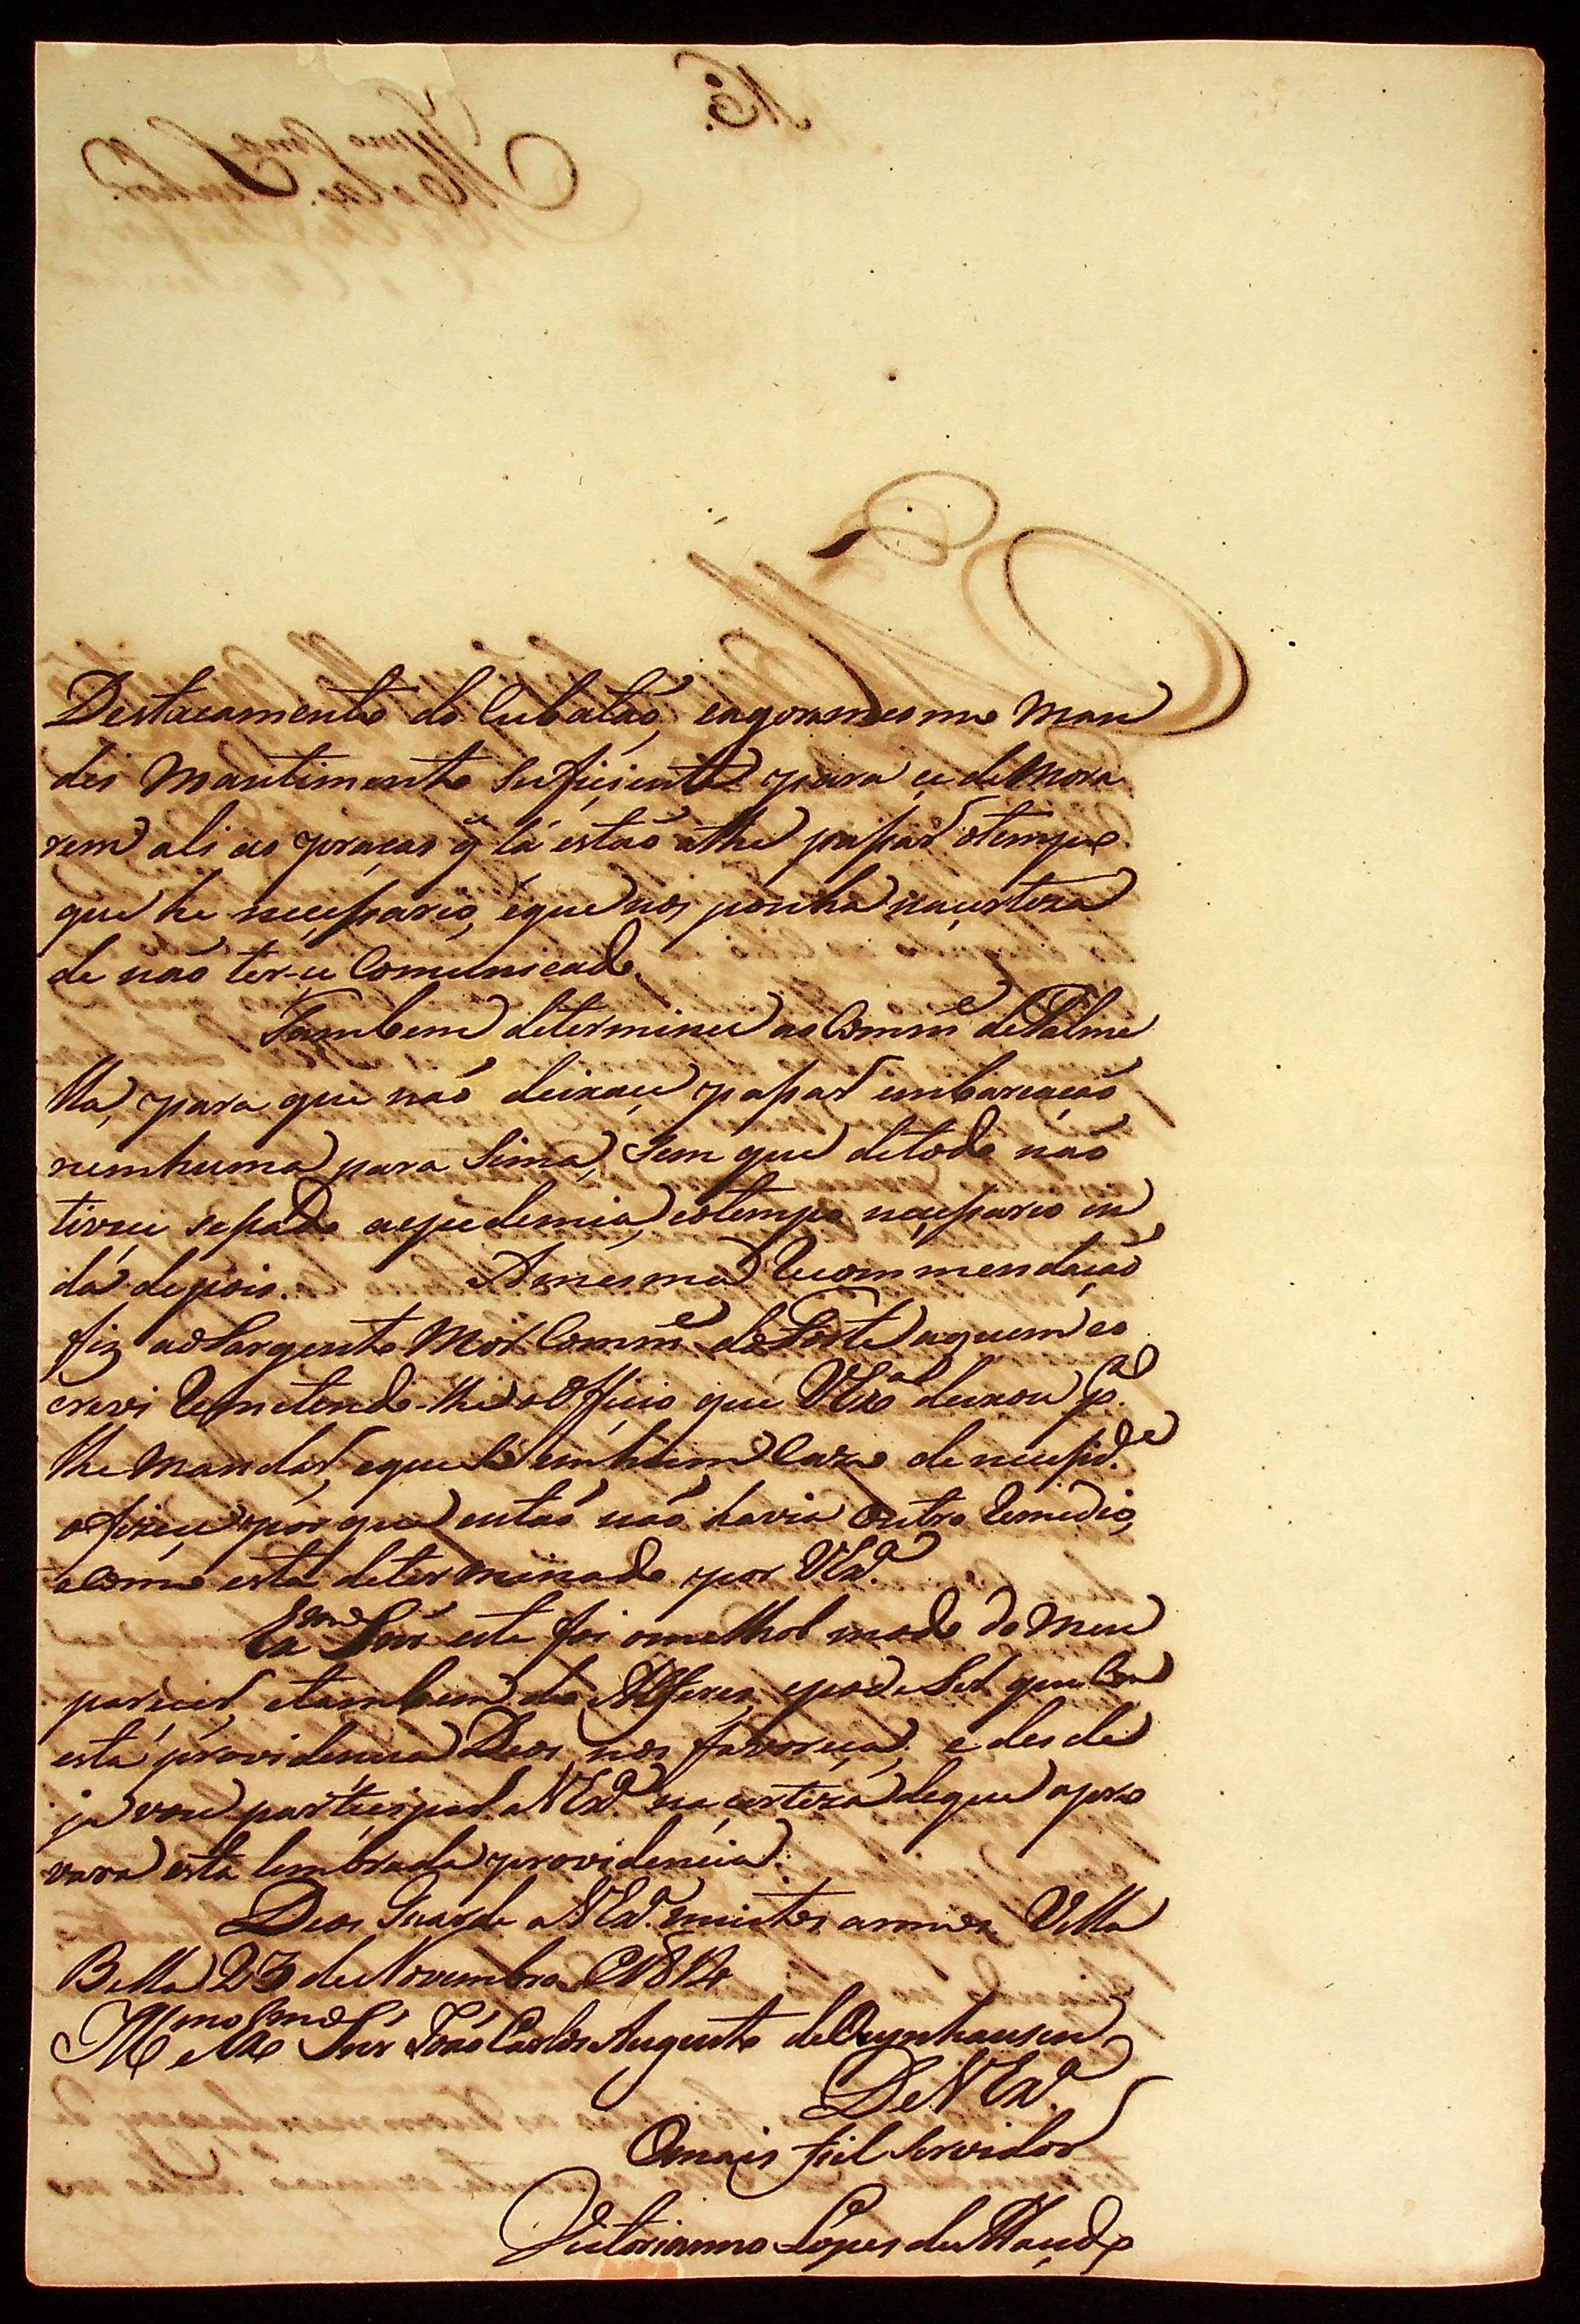 Destacamento do Cubatão, eagora mesmo man
dei mantimento suficiente para çe demora
rem ali as praças q̃ lá estaõ athe passar otempo
que he neçessario, eque nos ponha naçerteza
de naõ ter-çe Comunicado.
Tambem determinei ao Comm.e de Palme
lla, para que naõ deixaçe passar embarcaçaõ
nemhuma para Sima, sem que detodo naõ
tiveçe sessado aepedemia, eotempo neçessario in
da depois. Amesma Recommendaçaõ
fiz aoSargento Mor Comm.e do Forte aquem es
crevi Remetendo-lhe o Officio que VEx.a deixou p.a
lhe mandar, eque Se emhum cazo deneçessid.e
ofizeçe, por que entaõ naõ havia Outro Remedio,
eComo está determinado por VEx.a
Ex.mo Snr. este foi omelhor modo do meu
pareçer, etambem do Alferes, epode Ser que Com
esta providencia Deos nos favoreça; e desde
já vou partiçipar a VEx.a na çerteza deque apro
vara esta lembrada providencia.
Deos Guarde a VEx.a muitos annos Villa
Bella 23 de Novembro de 1814
Ill.mo e Ex.mo Snr. Joaõ Carlos Augusto de Oeynhausen
De VEx.a
Omais fiel Servidor
Victorianno Lopes de Maçedo